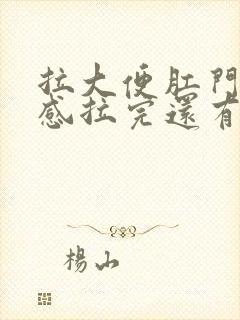 拉大便肛門
感拉完還有
楊山